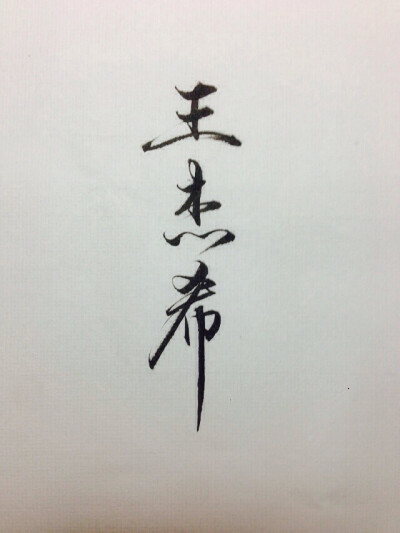 王杰希